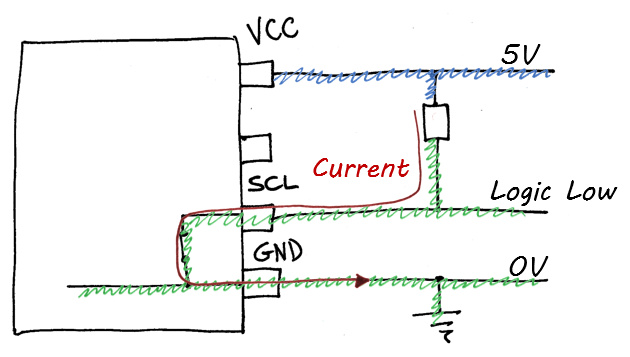 VCC
5V
Current
SCL
Logic Low
GND
0V